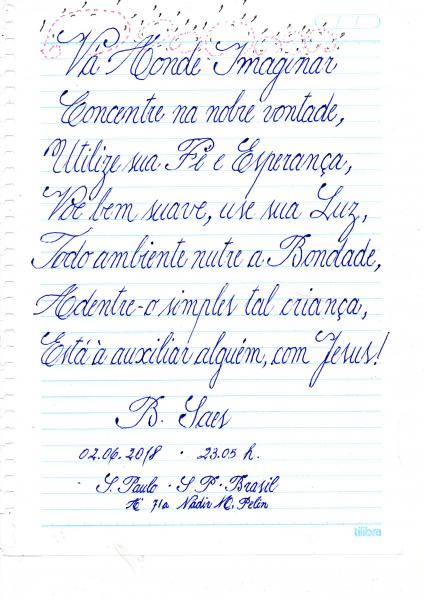 Vá Aonde Imaginar
Concentre na nobre vontade,
Utilize sua Fé e Esperança,
Voe bem suave, use sua Luz,
Todo ambiente nutre a Bondade,
Adentre-o simples tal criança,
Está à auxiliar alguém, com Jesus!
B. Saes
02.06.2018 · 23.05 h.
S. Paulo · S P · Brasil
71a Nadir M.
tilibra